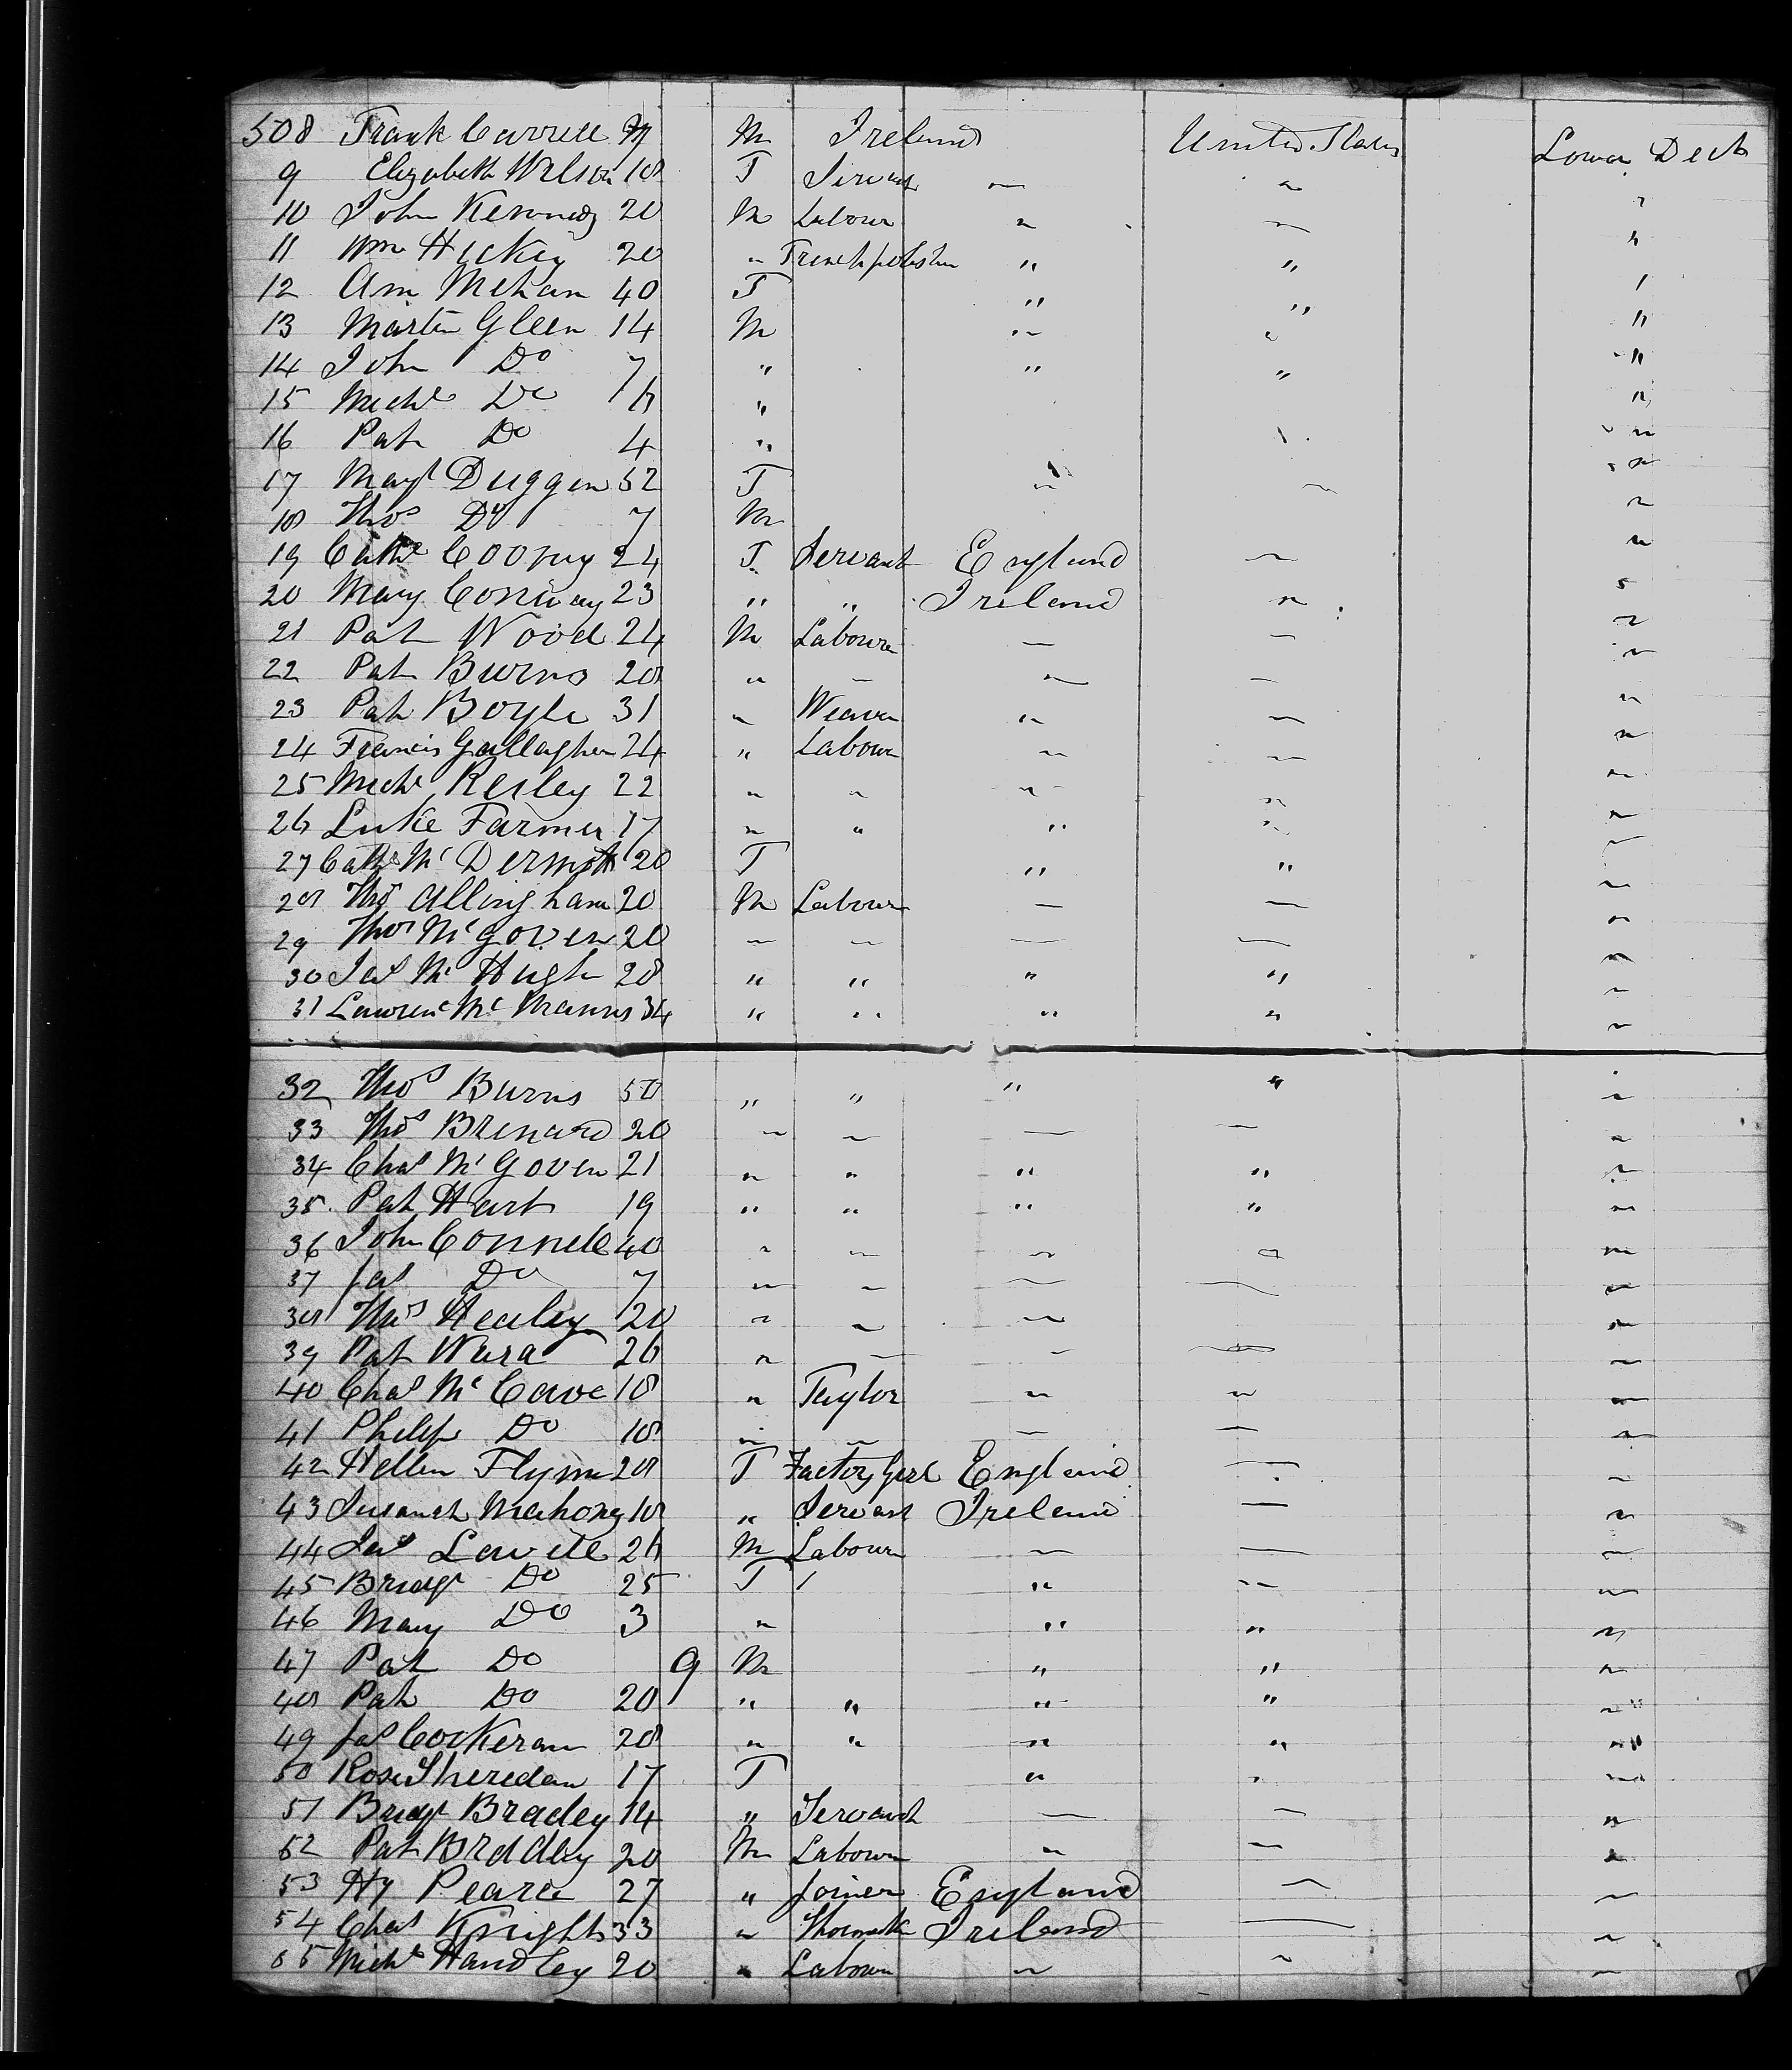 508 Frank Carrell M Ireland United States Lower Deck
9 Elizabeth Wilson 18 F Servant " "
10 John Kennedy 20 M Labour " " "
11 Wm Hickey 20 " French polisher " " "
12 Ann Mehan 40 F " " "
13 Martin Gleen 14 M " " "
14 John Do 7 " " " "
15 Michl Do 6 " "
16 Pat Do 4 " "
17 Magt Duggen 52 F " " "
18 Thos Do 7 M "
19 Cathe Coony 24 F Servant England " "
20 Mary Conway 23 " " Ireland " "
21 Pat Wood 24 M Labourer " " "
22 Pat Burns 28 " " " " "
23 Pat Boyle 31 " Weaver " " "
24 Francis Gallagher 24 " Labour " " "
25 Michl Reiley 22 " " " " "
26 Luke Farmer 17 " " " " "
27 Cathe Mc Dermott 20 F " " "
28 Thos Allingham 20 M Labour " " "
29 Thos Mc Goven 20 " " " " "
30 Jas Mc Hugh 28 " " " " "
31 Lawrence Mc Manus 34 " " " " "
32 Thos Burns 50 " " " " "
33 Thos Brenard 20 " " " " "
34 Chas Mc Goven 21 " " " " "
35 Pat Hart 19 " " " " "
36 John Connell 40 " " " " "
37 Jas Do 7 " " " " "
38 Thos Healey 20 " " " " "
39 Pat Wara 26 " " " " "
40 Chas Mc Cave 18 " Taylor " " "
41 Philip Do 18 " " " " "
42 Hellen Flynn 28 F Factory Girl England " "
43 Susanah Mahoney 18 " Servant Ireland " "
44 Jas Lavell 26 M Labour " " "
45 Bridgt Do 25 F " " "
46 Mary Do 3 " " " "
47 Pat Do 9 M " " "
48 Pat Do 20 " " " " "
49 Jas Cockeran 28 " " " " "
50 Rose Sheredan 17 F " " "
51 Bridgt Bradey 14 " Servant " " "
52 Pat Braddey 20 M Labour " " "
53 Hy Pearce 27 " Joiner England " "
54 Chas Knights 33 " Shoemaker Ireland " "
55 Michl Handley 20 " Labour " " "